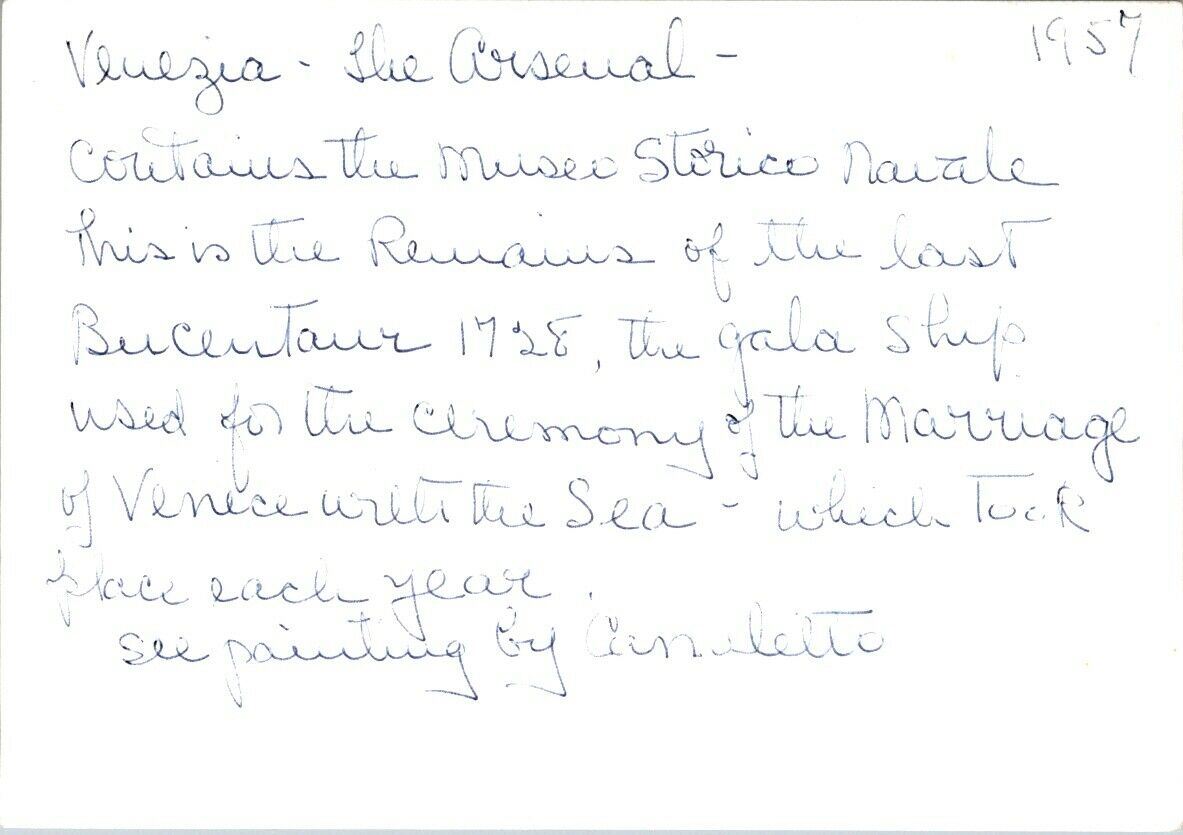 Venezia - The Arsenal - 1957
Contains the Museo Storico Navale
This is the Remains of the last
Bucentaur 1728, the gala ship
used for the ceremony of the Marriage
of Venice with the Sea - which took
place each year.
see painting by Canaletto